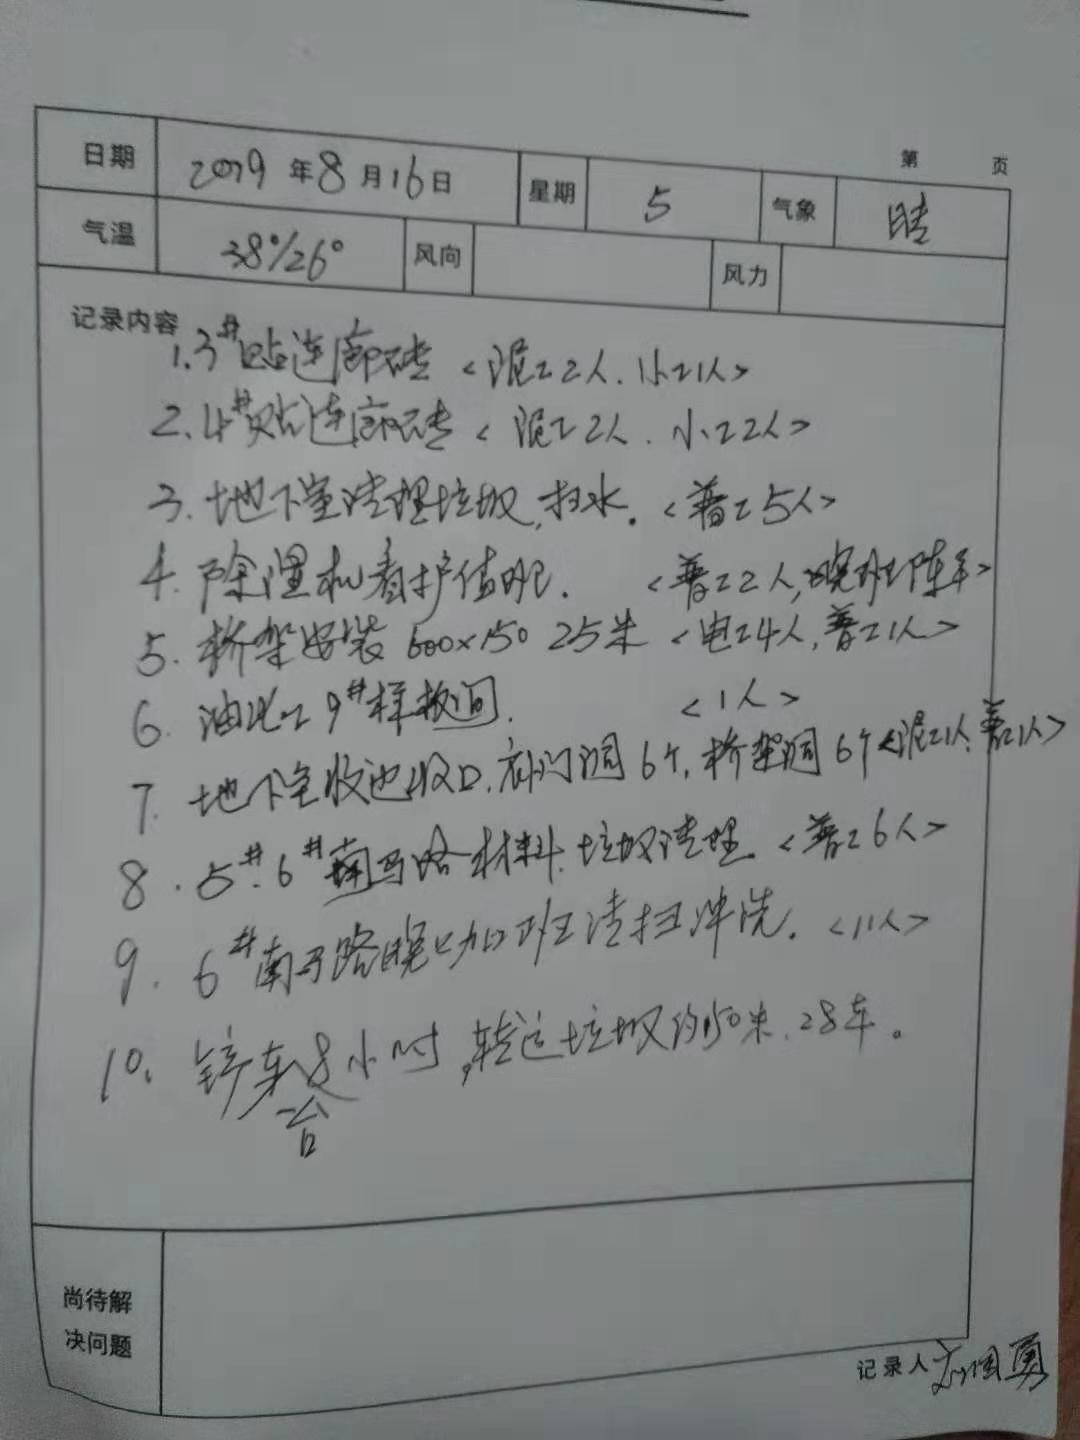 第 页
日期 2019年8月16日 星期 5 气象 晴
气温 38°/26° 风向 风力
记录内容
1.3#贴连廊砖<泥工2人.小工1人>
2.4#贴连廊砖<泥工2人.小工2人>
3.地下室清理垃圾,扫水.<普工5人>
4.除湿机看护值班.<普工2人,晚班陈军>
5.桥架安装600×150 25米<电工4人,普工1人>
6.油化工9#样板间.<1人>
7.地下室收边收口.门洞6个,桥架洞6个<泥工1人.普工1人>
8.5#.6#南马路材料.垃圾清理.<普工6人>
9.6#南马路晚上加班清扫冲洗.<11人>
10.铲车8小时,转运垃圾约150米.28车。
台
尚待解
决问题
记录人 国勇